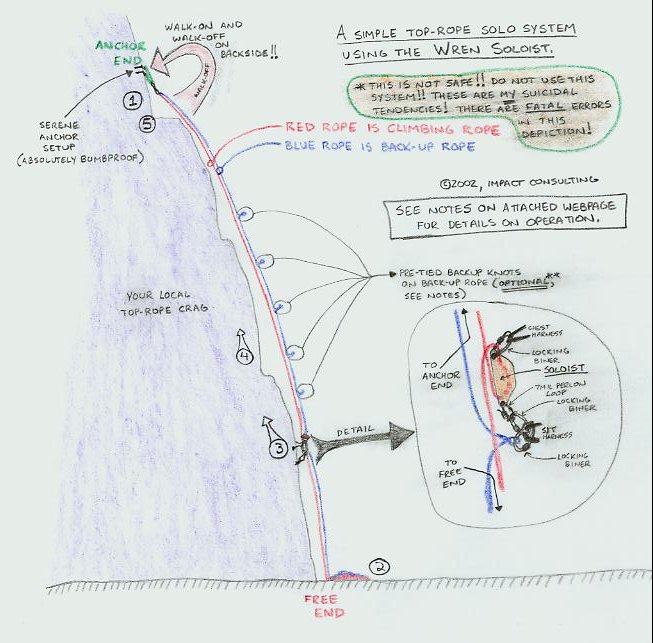 A SIMPLE TOP-ROPE SOLO SYSTEM
USING THE WREN SOLOIST.
*THIS IS NOT SAFE!! DO NOT USE THIS
SYSTEM!! THESE ARE MY SUICIDAL
TENDENCIES! THERE ARE FATAL ERRORS
IN THIS
DEPICTION!
WALK-ON AND
WALK-OFF
ON
BACKSIDE!!
WALK-OFF
ANCHOR
END
1
5
SERENE
ANCHOR
SETUP
(ABSOLUTELY BUMBPROOF)
RED ROPE IS CLIMBING ROPE
BLUE ROPE IS BACK-UP ROPE
©2002, IMPACT CONSULTING
SEE NOTES ON ATTACHED WEBPAGE
FOR DETAILS ON OPERATION.
PRE-TIED BACKUP KNOTS
ON BACK-UP ROPE (OPTIONAL,**
SEE NOTES)
YOUR LOCAL
TOP-ROPE CRAG
4
3
DETAIL
TO
ANCHOR
END
CHEST
HARNESS
LOCKING
BINER
SOLOIST
7MIL PERLON
LOOP
LOCKING
BINER
SIT
HARNESS
LOCKING
BINER
TO
FREE
END
2
FREE
END